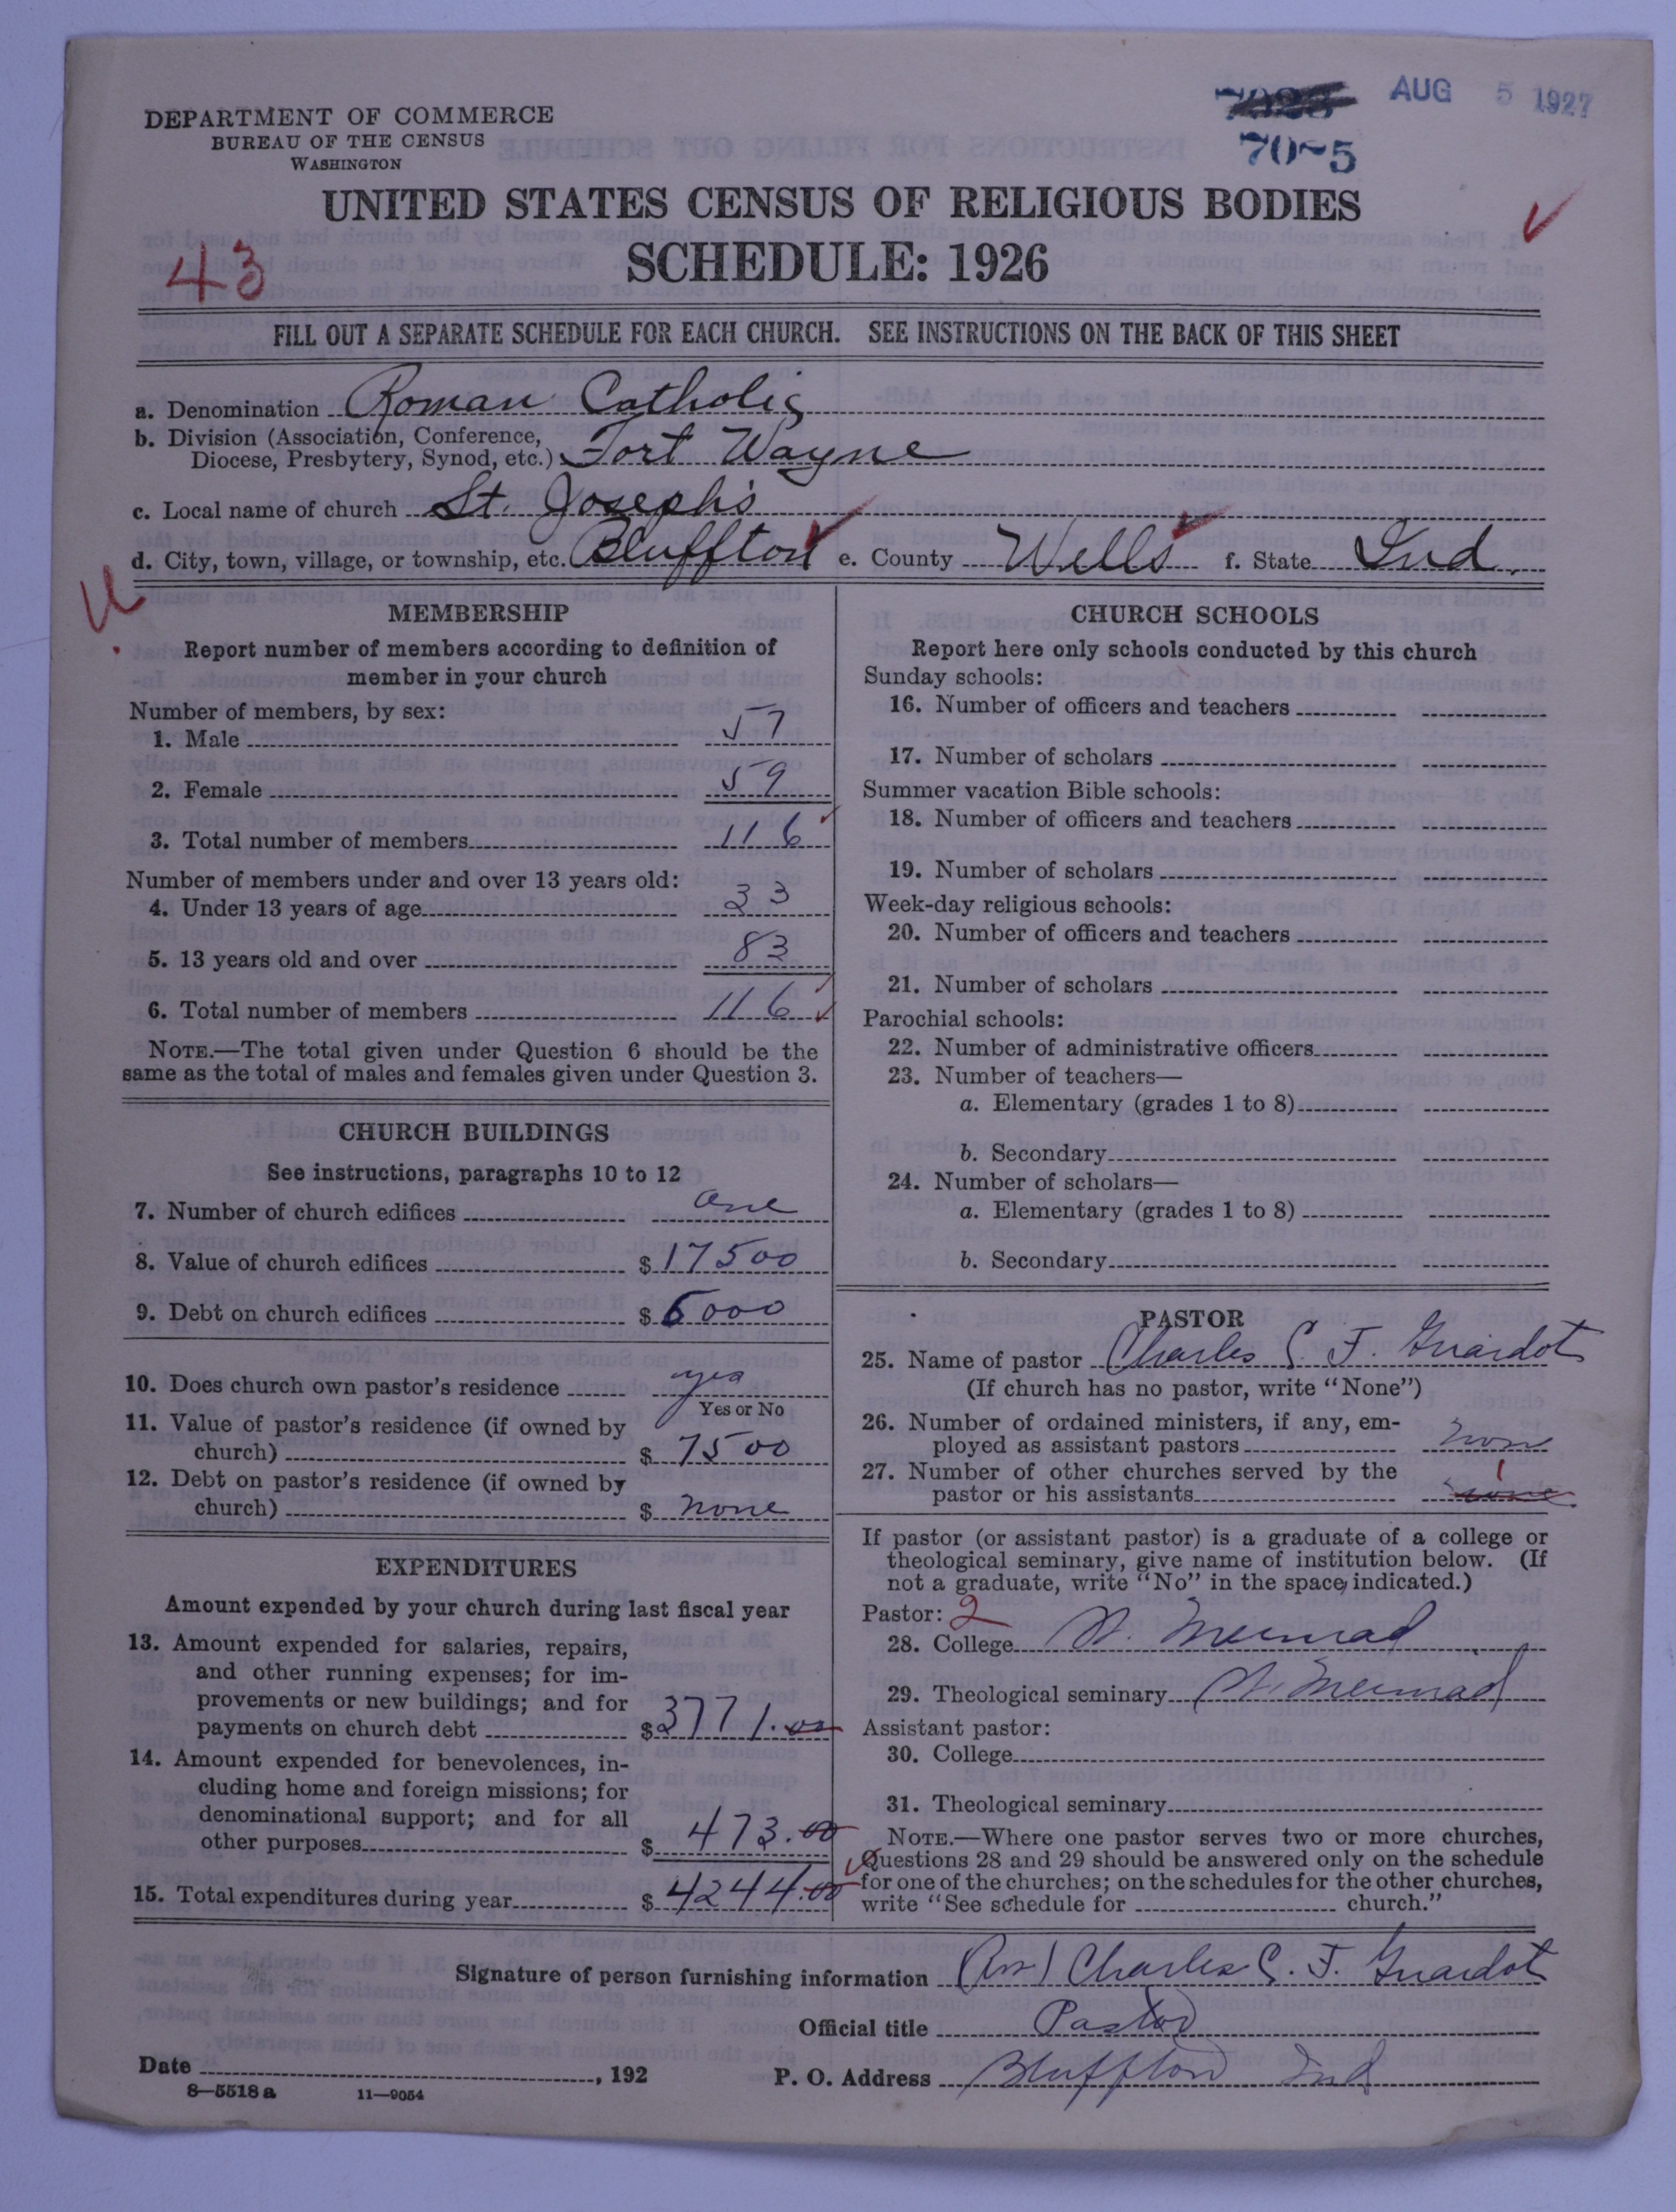 AUG 5 1927
DEPARTMENT OF COMMERCE
BUREAU OF THE CENSUS
WASHINGTON
70~5
UNITED STATES CENSUS OF RELIGIOUS BODIES
SCHEDULE: 1926
43
FILL OUT A SEPARATE SCHEDULE FOR EACH CHURCH. SEE INSTRUCTIONS ON THE BACK OF THIS SHEET
a. Denomination Roman Catholic
b. Division (Association, Conference,
Diocese, Presbytery, Synod, etc.) Fort Wayne
c. Local name of church St. Joseph's
d. City, town, village, or township, etc. Bluffton e. County Wells f. State Ind.
MEMBERSHIP
Report number of members according to definition of
member in your church
Number of members, by sex:
1. Male 57
2. Female 59
3. Total number of members 116
Number of members under and over 13 years old:
4. Under 13 years of age 33
5. 13 years old and over 83
6. Total number of members 116
NOTE.—The total given under Question 6 should be the
same as the total of males and females given under Question 3.
CHURCH BUILDINGS
See instructions, paragraphs 10 to 12
7. Number of church edifices one
8. Value of church edifices $ 17500
9. Debt on church edifices $ 6000
10. Does church own pastor's residence yes
Yes or No
11. Value of pastor's residence (if owned by
church) $ 7500
12. Debt on pastor's residence (if owned by
church) $ none
EXPENDITURES
Amount expended by your church during last fiscal year
13. Amount expended for salaries, repairs,
and other running expenses; for im-
provements or new buildings; and for
payments on church debt $ 3771.00
14. Amount expended for benevolences, in-
cluding home and foreign missions; for
denominational support; and for all
other purposes $ 473.00
15. Total expenditures during year $ 4244.00
CHURCH SCHOOLS
Report here only schools conducted by this church
Sunday schools:
16. Number of officers and teachers
17. Number of scholars
Summer vacation Bible schools:
18. Number of officers and teachers
19. Number of scholars
Week-day religious schools:
20. Number of officers and teachers
21. Number of scholars
Parochial schools:
22. Number of administrative officers
23. Number of teachers—
a. Elementary (grades 1 to 8)
b. Secondary
24. Number of scholars—
a. Elementary (grades 1 to 8)
b. Secondary
PASTOR
25. Name of pastor Charles C. F. Guardot
(If church has no pastor, write "None")
26. Number of ordained ministers, if any, em-
ployed as assistant pastors none
27. Number of other churches served by the 1
pastor or his assistants none
If pastor (or assistant pastor) is a graduate of a college or
theological seminary, give name of institution below. (If
not a graduate, write "No" in the space indicated.)
Pastor: 2
28. College St. Meinrad
29. Theological seminary St. Meinrad
Assistant pastor:
30. College
31. Theological seminary
NOTE.—Where one pastor serves two or more churches,
Questions 28 and 29 should be answered only on the schedule
for one of the churches; on the schedules for the other churches,
write "See schedule for church."
Signature of person furnishing information (Rev.) Charles C. F. Guardot
Official title Pastor
Date , 192 P. O. Address Bluffton Ind
8—5518 a 11—9054